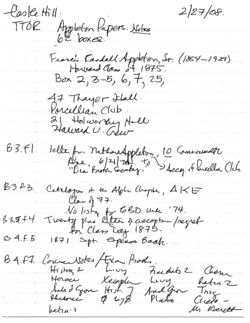 Castle Hill. 2/27/08.
TTOR Appleton Papers. Notes
62 boxes.
Francis Randall Appleton, Sr. (1854-1929)
Harvard Class of 1875.
Box 2, 3-5, 6, 7, 25,
47 Thayer Hall.
Porcellian Club.
21 Holworthy Hall
Harvard U. Crew
B3.F1 letter fr. Nathan Appleton, 10 Commonwealth
Ave. 6/21/74. to
"Dear Brother Society." Accep. of Porcellian Club
B3.F3 Catalogue of the Alpha Chapter, AKE
Class of 77.
No listing for GBD under '74.
B3.F4 Twenty five letters of acceptance/regret
for Class Day 1875.
B4.F5 1871 Sept. Expense Book.
B4.F7 Course Notes/Exam Books.
History 2 Livy
Horace Xenophon Livy
Hist 7
Rhetoric Plato Cicero